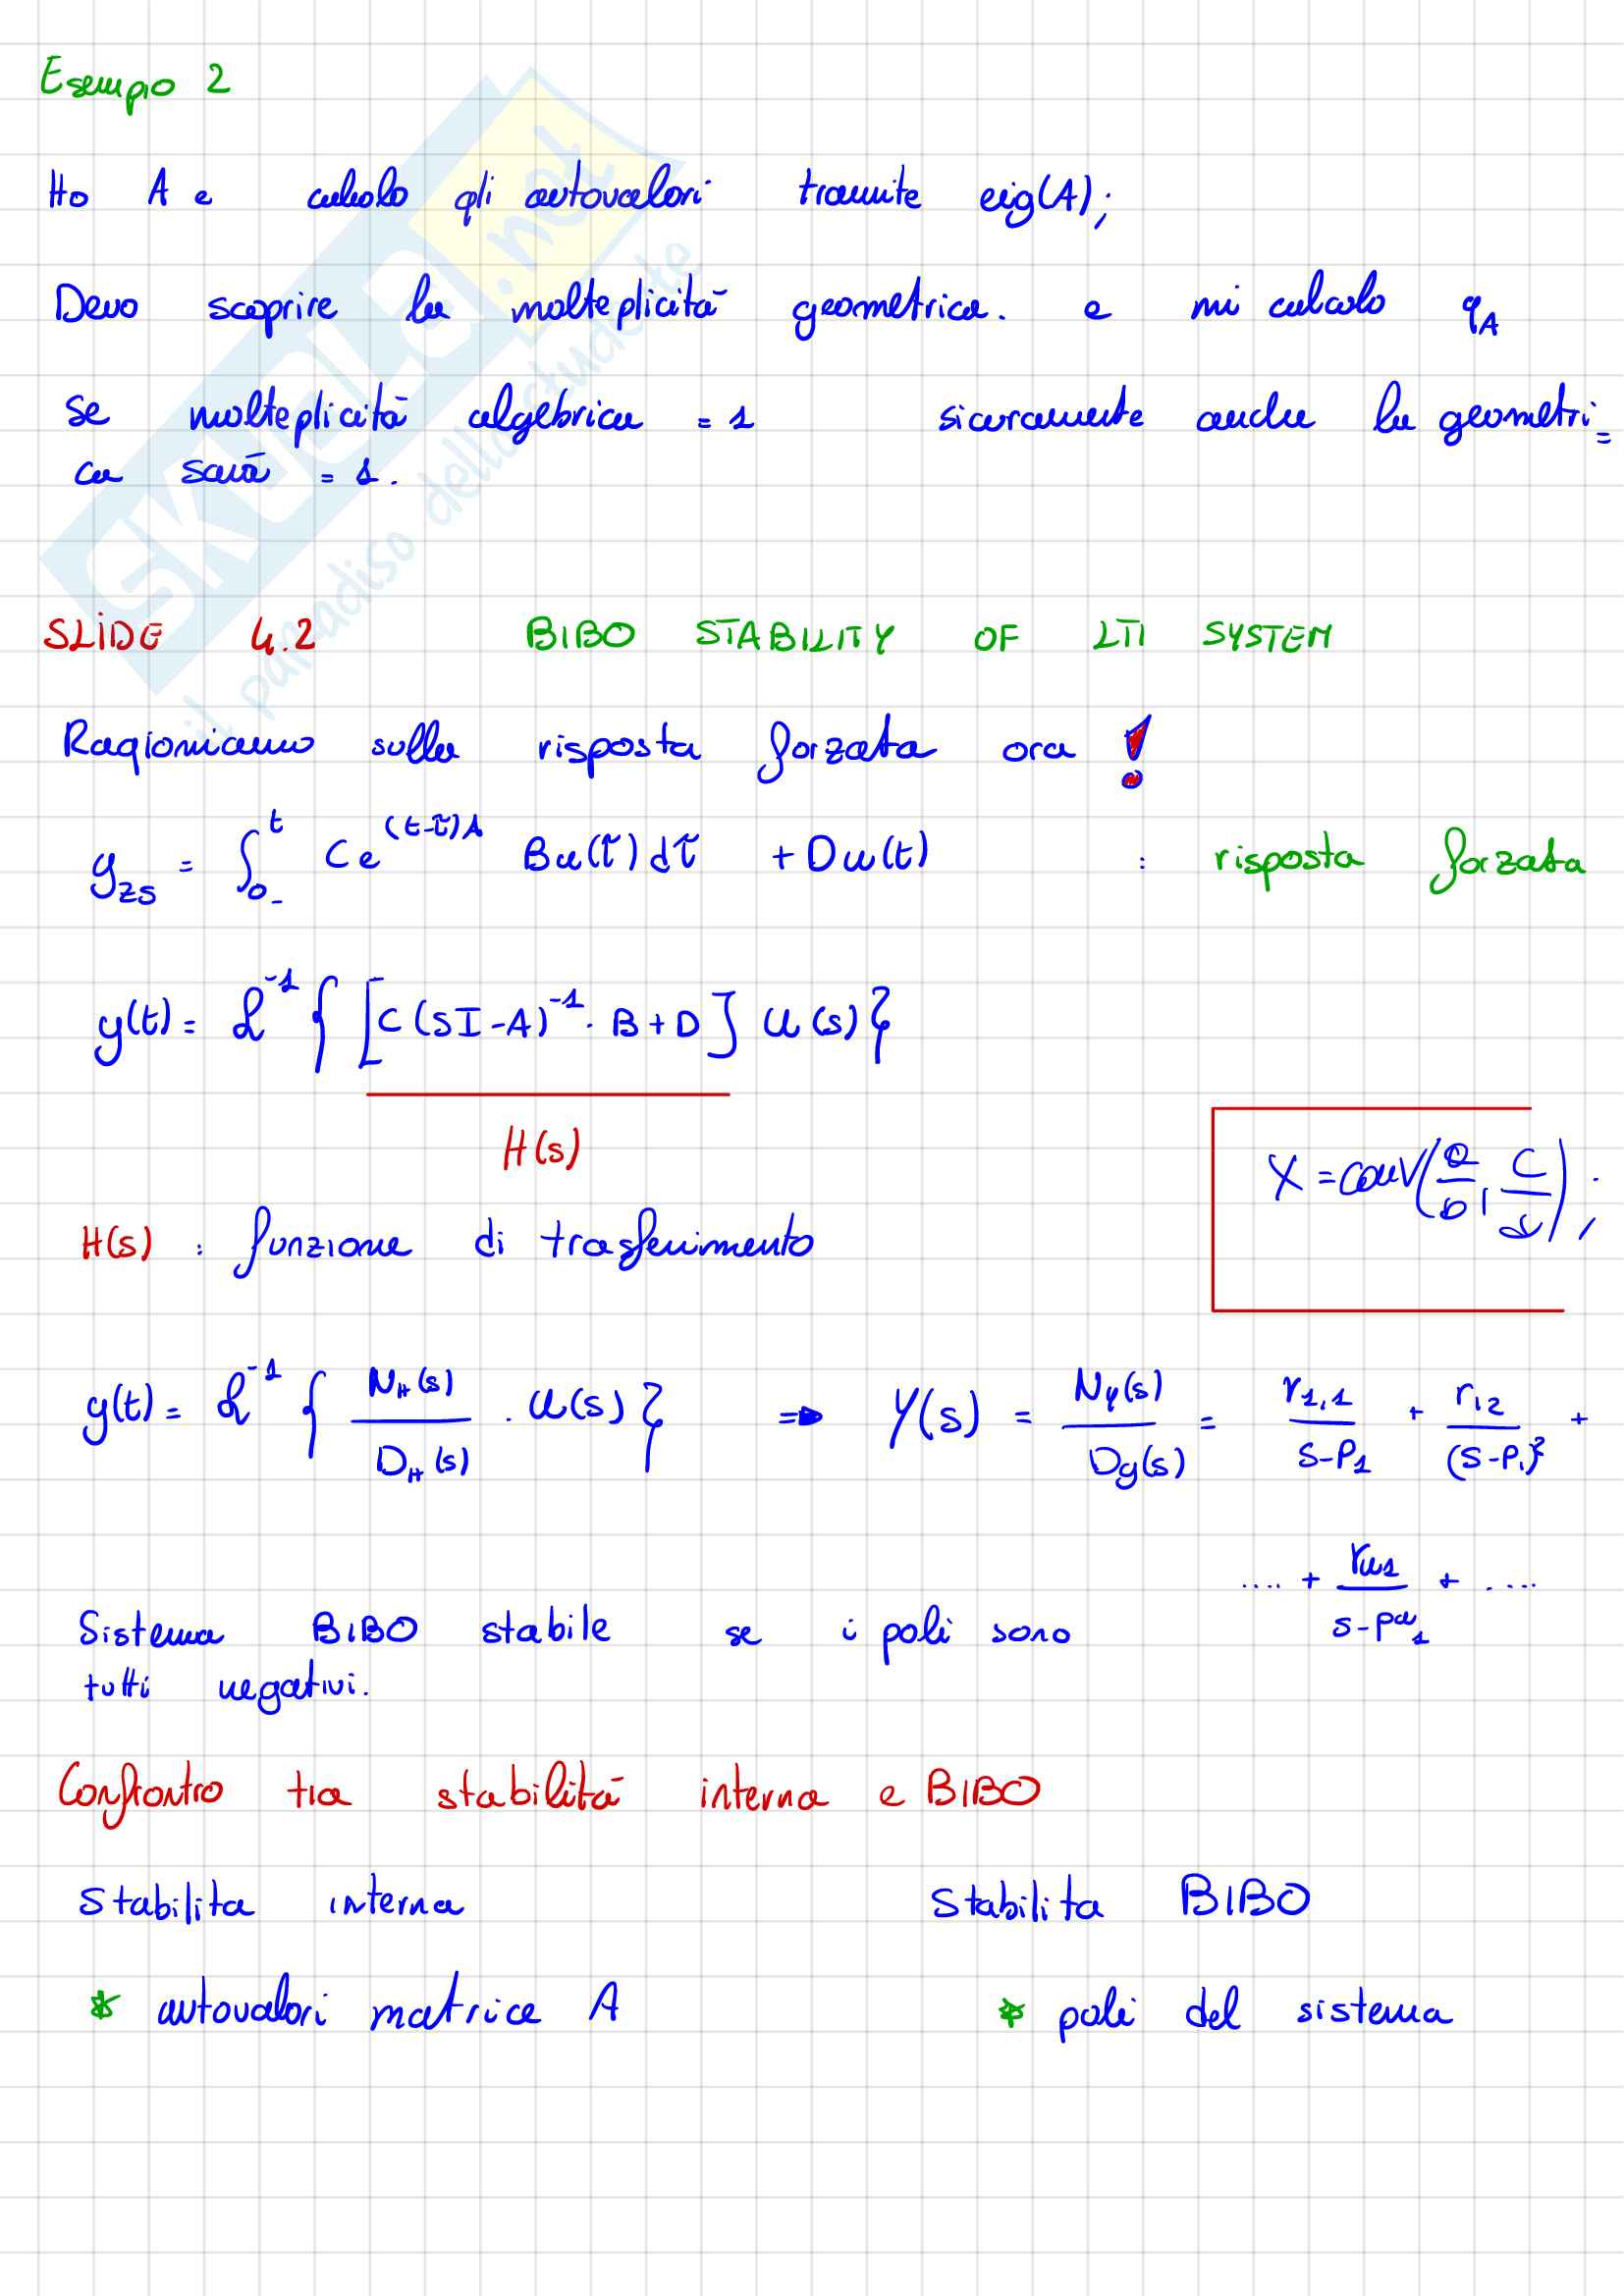 Esempio 2
Ho A e calcolo gli autovalori tramite eig(A);
Devo scoprire la molteplicità geometrica. e mi calcolo q_A
se molteplicità algebrica = 1 sicuramente anche la geometri=
ca sarà = 1.
SKUOLA.net
il paradiso dello studente
SLIDE 4.2 BIBO STABILITY OF LTI SYSTEM
Ragioniamo sulla risposta forzata ora !
y_zs = ∫_0-^t C e^(t-τ)A B u(τ) dτ + D u(t) : risposta forzata
y(t) = L^-1 { [C (sI-A)^-1 · B + D] U(s) }
H(s)
X = conv(a/b, c/d);
H(s) : funzione di trasferimento
y(t) = L^-1 { N_H(s)/D_H(s) · U(s) } => Y(s) = N_y(s)/D_y(s) = r_1,1/(s-p_1) + r_12/(s-p_1)^2 +
.... + r_m1/(s-p_m1) + ....
Sistema BIBO stabile se i poli sono
tutti negativi.
Confrontro tra stabilità interna e BIBO
Stabilita interna Stabilita BIBO
* autovalori matrice A * poli del sistema